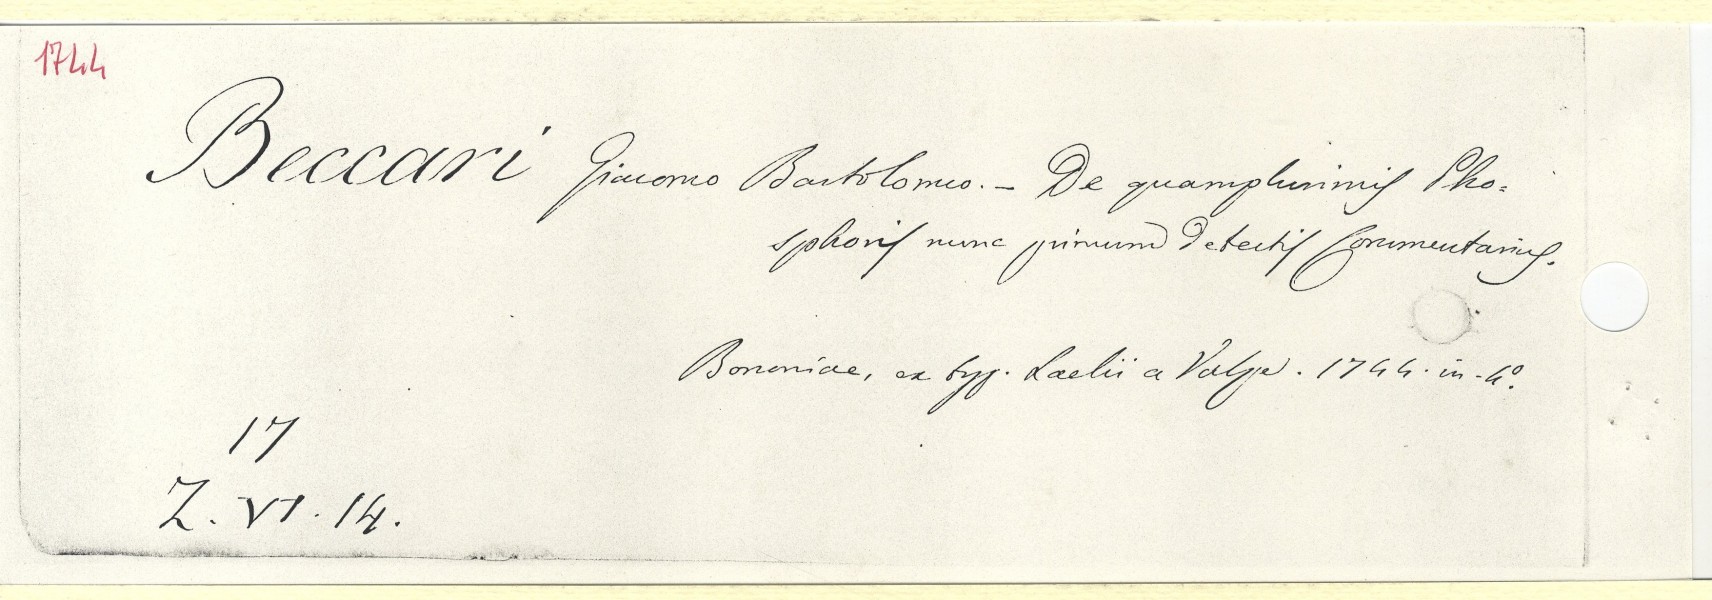 1744
Beccari Giacomo Bartolomeo. - De quamplurimis Pho=
sphoris nunc primum detectis Commentarius.
Bononiae, ex typ. Laelii a Vulpe. 1744. in-4º.
17
Z. VI. 14.